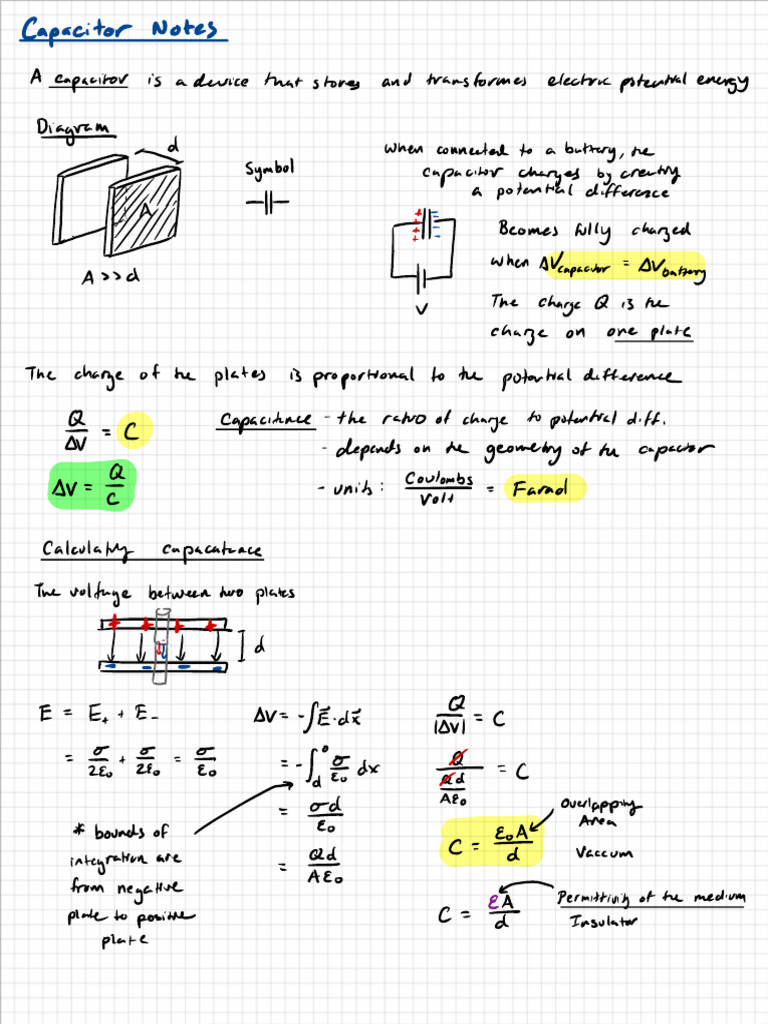 Capacitor Notes
A capacitor is a device that stores and transformes electric potential energy
Diagram
d
A
A >> d
Symbol
When connected to a battery, the
capacitor charges by creating
a potential difference
+ + + +
- - - -
V
Becomes fully charged
when ΔVcapacitor = ΔVbattery
The charge Q is the
charge on one plate
The charge of the plates is proportional to the potential difference
Q/ΔV = C
ΔV = Q/C
Capacitance - the ratio of charge to potential diff.
- depends on the geometry of the capacitor
- units: Coulombs/Volt = Farad
Calculating capacatance
The voltage between two plates
+ + + +
- - - -
d
E = E+ + E-
= σ/2ε₀ + σ/2ε₀ = σ/ε₀
* bounds of
integration are
from negative
plate to positive
plate
ΔV = -∫E⃗·dx⃗
= -∫_d^0 σ/ε₀ dx
= σd/ε₀
= Qd/Aε₀
Q/|ΔV| = C
Q/(Qd/Aε₀) = C
C = ε₀A/d
Overlapping
Area
Vaccum
C = εA/d
Permittivity of the medium
Insulator